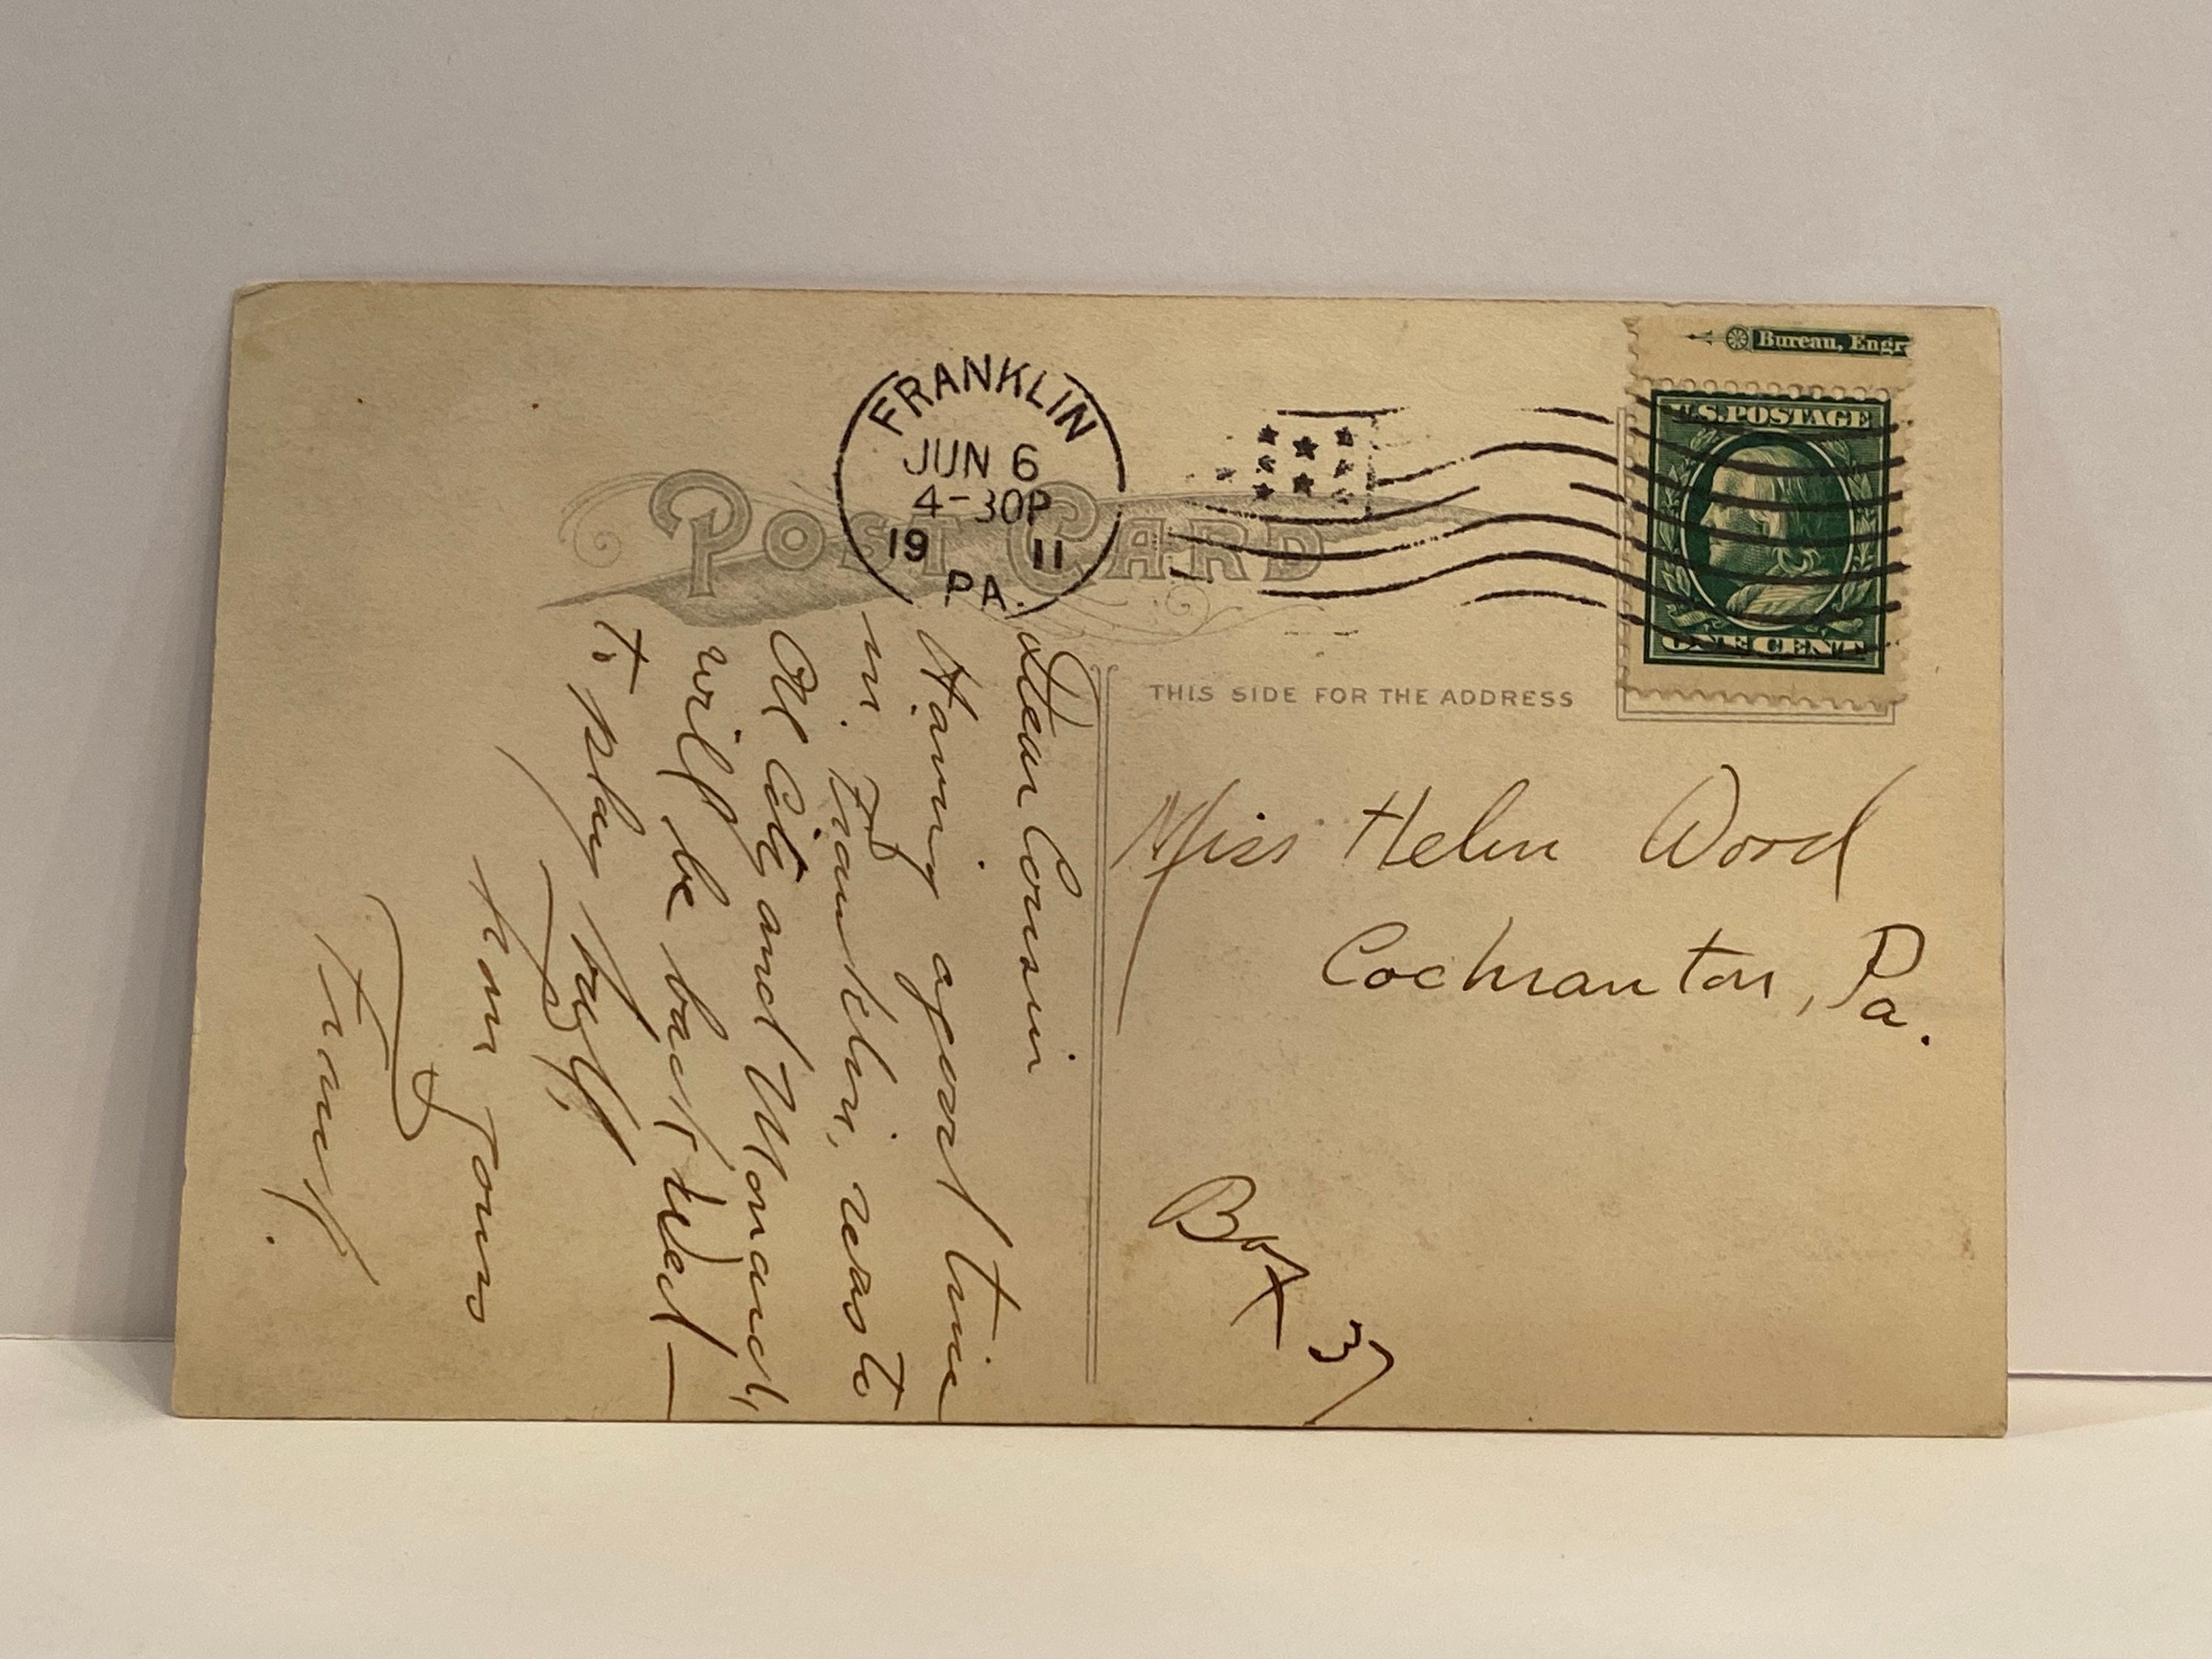 Bureau, Engr
U.S. POSTAGE
ONE CENT
FRANKLIN
JUN 6
4-30P
19 11
PA.
POST CARD
THIS SIDE FOR THE ADDRESS
Miss Helen Wood
Cochranton, Pa.
Box 37
Dear Cousin
Having a good time
in Franklin, was to
Oil City and Monarch,
will be back Wed—
to play ball,
from Yours